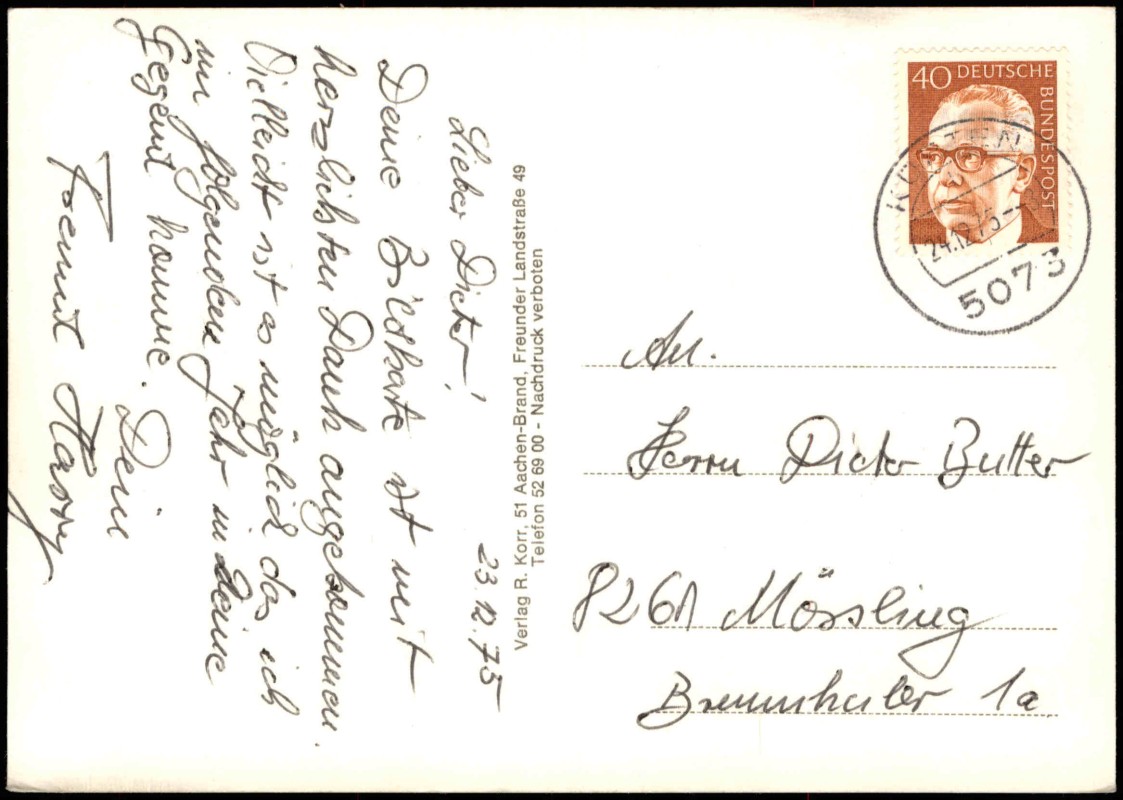 23.12.75
Lieber Dieter!
Deine Bildkarte ist mit
herzlichsten Dank angekommen.
Vielleicht ist es möglich das ich
im folgenden Jahr in deine
Gegemt komme. Dein
Freund Harry
Verlag R. Korr, 51 Aachen-Brand, Freunder Landstraße 49
Telefon 52 69 00 - Nachdruck verboten
40 DEUTSCHE
BUNDESPOST
24.12.75
5073
An.
Herrn Dieter Butter
8261 Mössling
1a